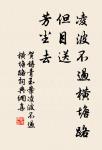 凌波不過橫塘路
但目送
芳尘去
賀鑄青玉案凌波不過
橫塘路詞典網喜